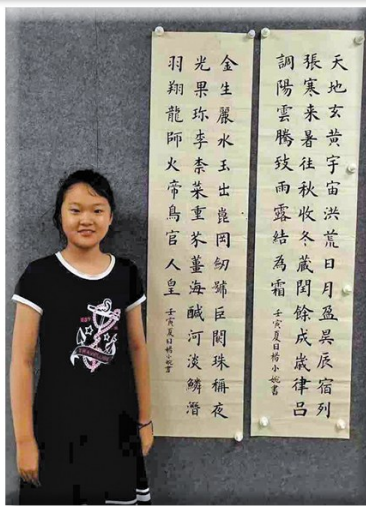 天地玄黄宇宙洪荒日月盈昃辰宿列
張寒来暑往秋收冬藏閏餘成歲律吕
調陽雲騰致雨露結為霜
壬寅夏日楊小婉書
金生麗水玉出崑岡釼號巨闕珠稱夜
光果珎李柰菜重芥薑海醎河淡鱗潛
羽翔龍師火帝鳥官人皇
壬寅夏日楊小婉書